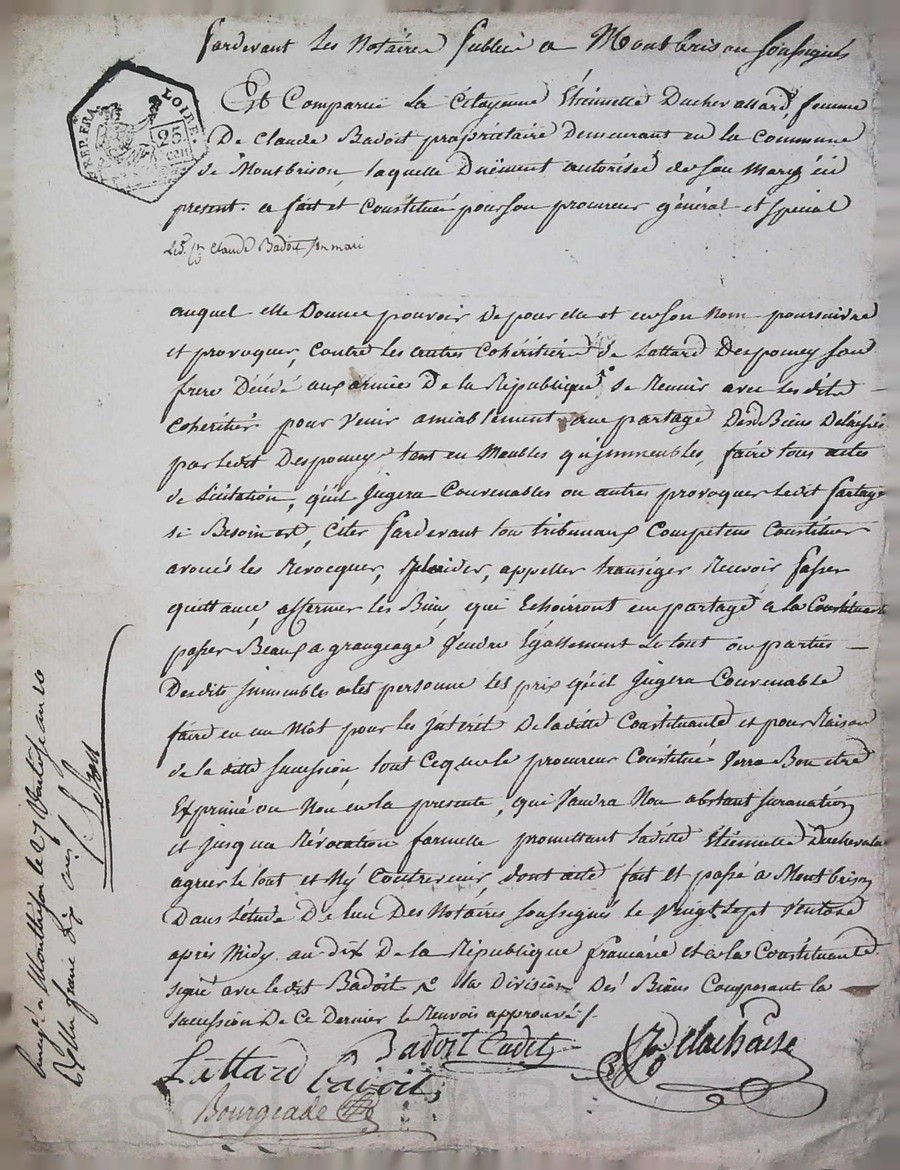 Pardevant Les Notaires Publics a Montbrison soussignés
REP. FRA. LOIRE. 25 CEN
Est Comparue La Citoyenne Etiennette Duchevallard, femme
De Claude Badoit propriétaire Demeurant en la Commune
de Montbrison, laquelle Duëment autorisée de son mary ici
present. a fait et Constitué pour son procureur général et spécial
Claude Badoit son mari
auquel elle Donne pouvoir de pour elle et en son Nom poursuivre
et provoquer, Contre les autres Cohéritiers de Lattard Despomey son
frere Décédé aux armées De la République, se Reunir avec les dits
Cohéritiers pour Venir amiablement au partage Des Biens Délaissés
par ledit Despomey tant en Meubles qu'immeubles, faire tous actes
de Licitation, qu'il Jugera Convenables ou autres provoquer Ledit partage
si Besoin est, Citer Pardevant tous tribunaux Competens Constituer
avoués les Revocquer, plaider, appeller transiger Recevoir passer
quittance, affermer les Biens, qui Echoiront en partage a la Constituante
passer Beaux a grangeage Vendre Egallement Le tout ou parties
Desdits immeubles a les prix qu'il Jugera Convenable
faire en un Mot pour les Jnterêt De laditte Constituante et pour Raison
de la ditte sucession tout Ceque le procureur Constitué Verra Bon etre
Exprimé ou Non en la presente, qui Vaudra Non obstant surannation
et jusqu'a Révocation formelle promettant laditte Etiennette Duchevallard
agréer le tout et N'y Contrevenir, dont acte fait Et passé à Montbrison
Dans l'étude De l'un Des Notaires soussignés le vingt sept Ventose
après Midy. an dix De la République francaise et a la Constituante
signé avec ledit Badoit la Division Des Biens Composant la
sucession De Ce Dernier le Renvoi approuvé /.
Lattard Badoit
Badoit Cadet
Delachaise
Bourgeade
Montbrison le 27 Ventose an 10